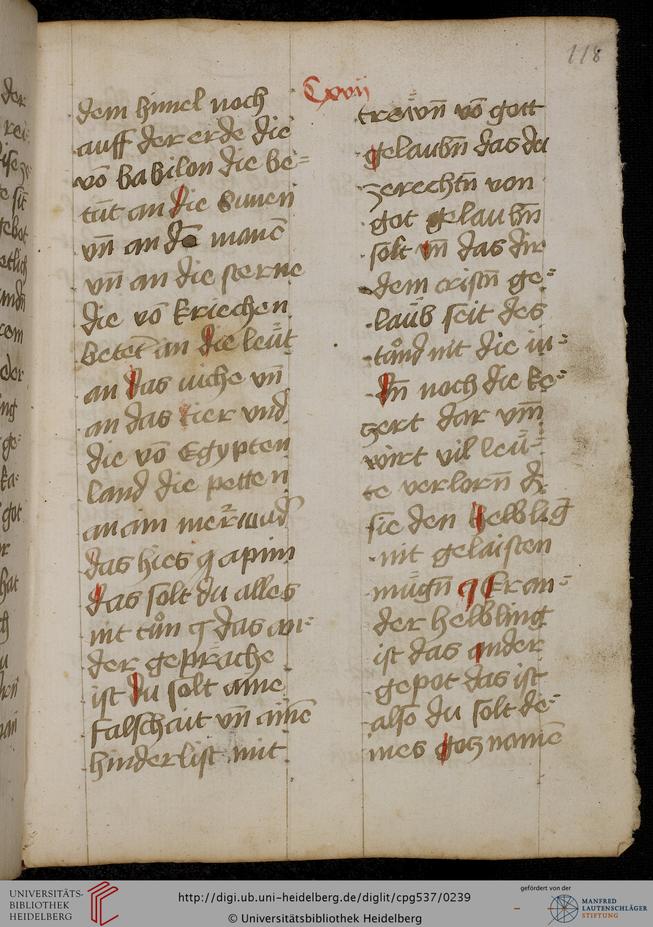 118
Cxvij
dem himel noch
auff der erde die
vō babilon die be=
tūt an die Sunen
vn̄ an dē manē
vn̄ an die sterne
die vō kriechen
betet̄ an die leūt
an das viche vn̄
an das tier vnd
die vō Egypten
land die petten
an ain
das hies apim
das solt du alles
nit tůn das an=
der geprache
ist du solt aine
falschait vn̄ ainē
hinderlist mit
trewn̄ vō gott
gelaubn̄ das du
zerechtn̄ von
got gelaubn̄
solt vn̄ das dir
dem cristn̄ ge=
laub seit des
tånd nit die iu=
dn̄ noch die ke=
zert dar vm̄
wirt vil leū=
te verlorn̄ dz
sie den helbling
nit gelaisten
mügn̄ an=
der helbling
ist das ander
gepot das ist
also du solt de=
ines gotz namē
UNIVERSITÄTS-
BIBLIOTHEK
HEIDELBERG
http://digi.ub.uni-heidelberg.de/diglit/cpg537/0239
© Universitätsbibliothek Heidelberg
gefördert von der
MANFRED
LAUTENSCHLÄGER
STIFTUNG